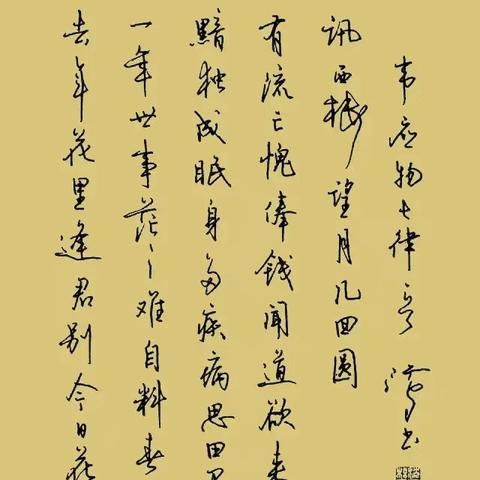 去年花里逢君别今日花
一年世事茫々难自料春
黯独成眠身多疾病思田里
有流亡愧俸钱闻道欲来
讯西楼望月几回圆
韦应物七律一首
书